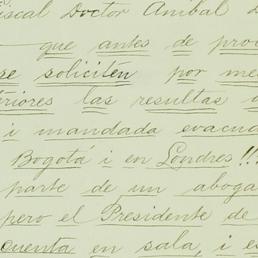 iscal Doctor Anibal
que antes de pro
se soliciten por me
riores las resultas
i mandada evacua
Bogotá i en Londres!!
parte de un aboga
pero el Presidente de
cuenta en sala, i es